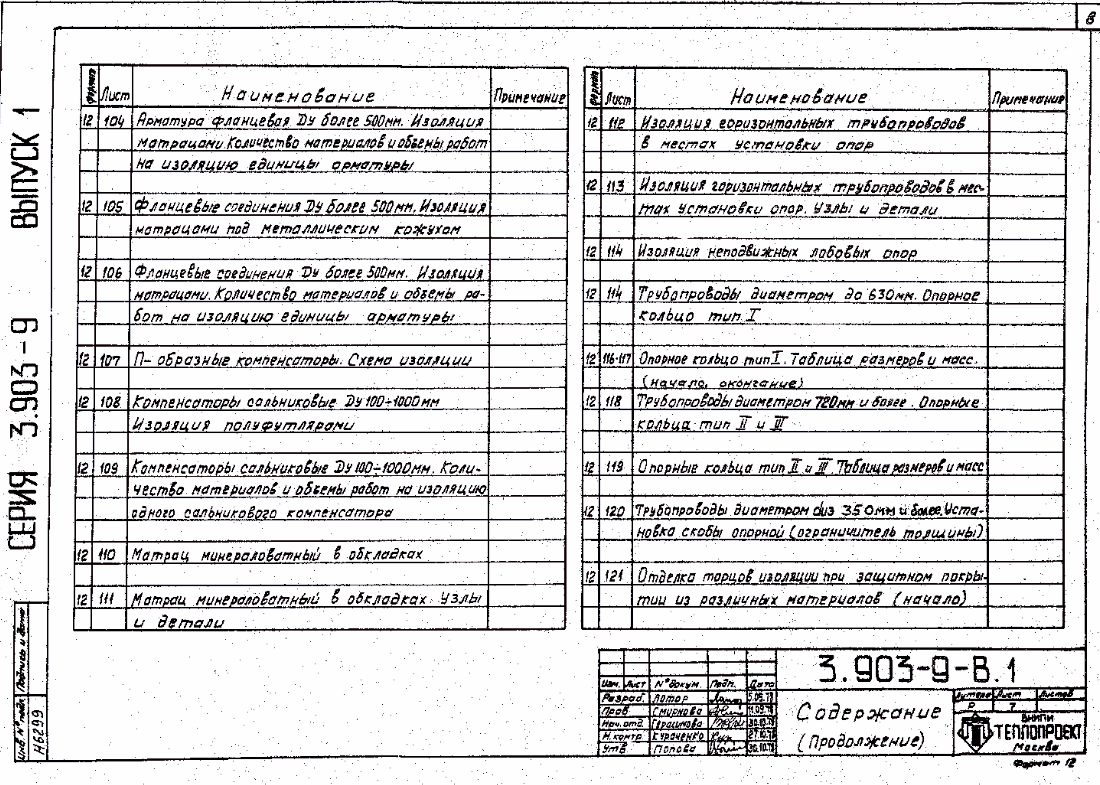 8
СЕРИЯ 3.903-9 ВЫПУСК 1
Формат Лист Наименование Примечание
12 104 Арматура фланцевая Dу более 500мм. Изоляция
матрацами. Количество материалов и объемы работ
на изоляцию единицы арматуры
12 105 Фланцевые соединения Dу более 500мм. Изоляция
матрацами под металлическим кожухом
12 106 Фланцевые соединения Dу более 500мм. Изоляция
матрацами. Количество материалов и объемы ра-
бот на изоляцию единицы арматуры
12 107 П-образные компенсаторы. Схема изоляции
12 108 Компенсаторы сальниковые Dу 100÷1000мм
Изоляция полуфутлярами
12 109 Компенсаторы сальниковые Dу 100÷1000мм. Коли-
чество материалов и объемы работ на изоляцию
одного сальникового компенсатора
12 110 Матрац минераловатный в обкладках
12 111 Матрац минераловатный в обкладках Узлы
и детали
Формат Лист Наименование Примечание
12 112 Изоляция горизонтальных трубопроводов
в местах установки опор
12 113 Изоляция горизонтальных трубопроводов в мес-
тах установки опор. Узлы и детали
12 114 Изоляция неподвижных лобовых опор
12 114 Трубопроводы диаметром до 630мм. Опорное
кольцо тип I
12 116-117 Опорное кольцо тип I. Таблица размеров и масс.
(начало, окончание)
12 118 Трубопроводы диаметром 720мм и более. Опорные
кольца тип II и III
12 119 Опорные кольца тип II и III. Таблица размеров и масс
12 120 Трубопроводы диаметром 350мм и более. Уста-
новка скобы опорной (ограничитель толщины)
12 121 Отделка торцов изоляции при защитном покры-
тии из различных материалов (начало)
Инв № подл. Подпись и дата
Н6299
3.903-9-В.1
Изм. Лист № докум. Подп. Дата
Разраб. Лотор
Пров. Смирнова
Нач.отд. Герасимова 30.10.78
Н.контр Кураченко 27.10.78
Утв Попова 30.10.78
Содержание
(Продолжение)
Литера Лист Листов
Р 7
ВНИПИ
ТЕПЛОПРОЕКТ
Москва
Формат 12